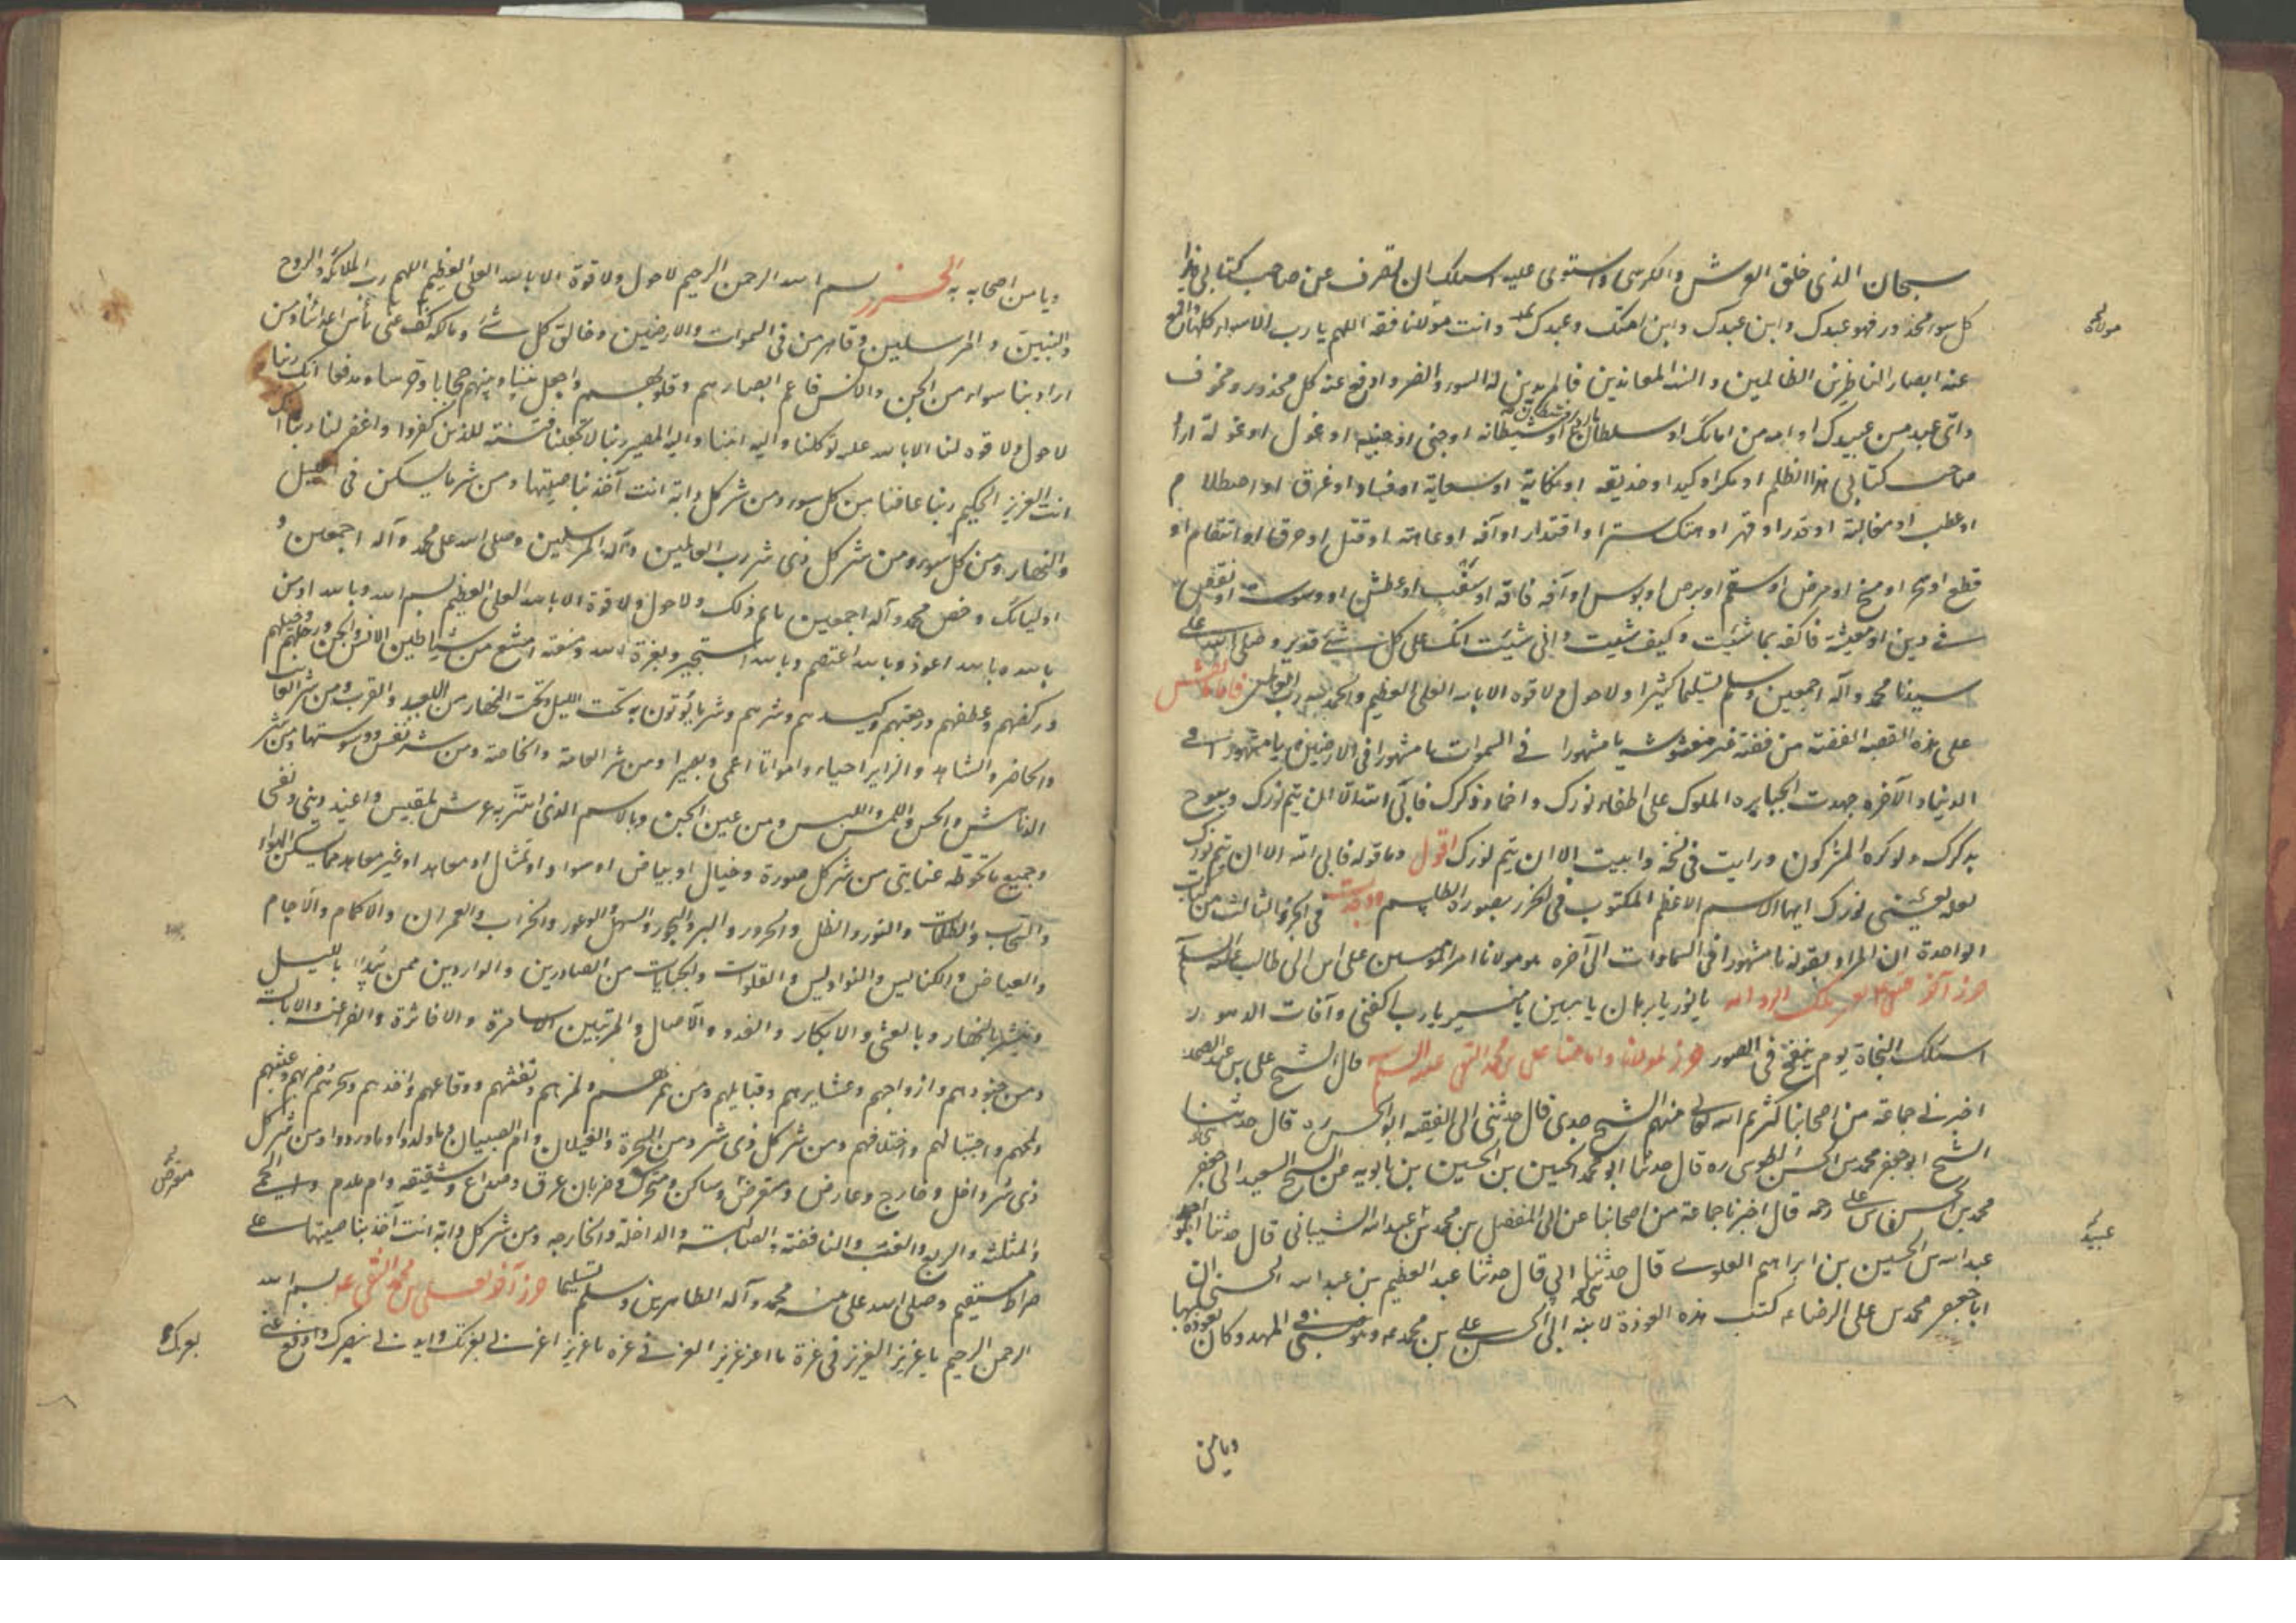 سبحان الذی خلق العرش والکرسی واستوی علیه اسئلک ان تصرف عن صاحب کتابی هذا
کل سوء ومحذور فهو عبدک وابن عبدک وابن امتک وعبدک وانت مولاه فقه اللهم یا رب الاسواء کلها واقمع
عنه ابصار الظالمین والسنة المعاندین فالمریدین له السوء والضر وادفع عنه کل محذور ومخوف
وای عبد من عبیدک او امة من امائک او سلطان مارد او شیطان او شیطانة او جنی او جنیة او غول او غولة اراد
صاحب کتابی هذا بظلم او مکر او کید او خدیعة او نکایة او سعایة او فساد او غرق او اصطلام
او عطب او مغالبة او غدر او قهر او هتک ستر او اقتدار او آفة او عاهة او قتل او حرق او انتقام او
قطع او سحر او مسخ او مرض او سقم او برص او بؤس او آفة فاقة او سغب او عطش او وسوسة او نقص
فی دین او معیشة فاکفه بما شئت وکیف شئت وانی شئت انک علی کل شیء قدیر وصلی الله علی
سیدنا محمد وآله اجمعین وسلم تسلیما کثیرا ولا حول ولا قوة الا بالله العلی العظیم والحمد لله رب العالمین فاما ما ینقش
علی هذه القصبة الفضة من فضة غیر مغشوشة یا مشهورا فی السموات یا مشهورا فی الارضین یا مشهورا فی
الدنیا والآخرة جهدت الجبابرة والملوک علی اطفاء نورک واخماد ذکرک فابی الله الا ان یتم نورک ویبوح
بذکرک ولو کره المشرکون ورایت فی نسخة وابیت الا ان یتم نورک اقول وما قوله فابی الله الا ان یتم نورک
لعله یعنی نورک ایها الاسم الاعظم المکتوب فی الحرز بصورة الطلسم ووجدت فی الجزء الثالث من کتاب
الواحدة ان المراد بقوله یا مشهورا فی السماوات الی آخره هو مولانا امیر المؤمنین علی بن ابی طالب علیه السلام
حرز آخر یا نور یا برهان یا مبین یا منیر یا رب اکفنی وآفات الدهور
اسئلک النجاة یوم ینفخ فی الصور حرز لمولانا وامامنا علی بن محمد النقی علیه السلام قال الشیخ علی بن عبد الصمد
اخبرنی جماعة من اصحابنا کثرهم الله تعالی منهم الشیخ جدی قال حدثنی ابی الفقیه ابو الحسن ره قال حدثنا
الشیخ ابو جعفر محمد بن الحسن الطوسی ره قال حدثنا ابو محمد الحسین بن الحسین بن بابویه عن الشیخ السعید ابی جعفر
محمد بن الحسن بن علی رحمه قال اخبرنا جماعة من اصحابنا عن ابی المفضل بن محمد بن عبد الله الشیبانی قال حدثنا ابو احمد
عبد الله بن الحسین بن ابراهیم العلوی قال حدثنا ابی قال حدثنا عبد العظیم بن عبد الله الحسنی ان
ابا جعفر محمد بن علی الرضا ع کتب هذه العوذة لابنه ابی الحسن علی بن محمد ع وهو صبی فی المهد وکان یعوذه بها
ویامن
مولاه
عبید
ویامن اصحابه به الحرز بسم الله الرحمن الرحیم لا حول ولا قوة الا بالله العلی العظیم اللهم رب الملائکة والروح
والنبیین والمرسلین وقاهر من فی السموات والارضین وخالق کل شیء ومالکه کف عنی بأس اعدائنا ومن
اراد بنا سوء من الجن والانس فاعم ابصارهم وقلوبهم واجعل بیننا وبینهم حجابا وحرسا ومدفعا انک ربنا
لا حول ولا قوة لنا الا بالله علیه توکلنا والیه انبنا والیه المصیر ربنا لا تجعلنا فتنة للذین کفروا واغفر لنا ربنا انک
انت العزیز الحکیم ربنا عافنا من کل سوء ومن شر کل دابة انت آخذ بناصیتها ومن شر ما یسکن فی اللیل
والنهار ومن کل سوء ومن شر کل ذی شر رب العالمین وآله المرسلین وصلی الله علی محمد وآله اجمعین و
اولیائک وخص محمد وآله اجمعین باتم ذلک ولا حول ولا قوة الا بالله العلی العظیم بسم الله وبالله اومن
بالله وبالله اعوذ وبالله اعتصم وبالله استجیر وبعزة الله ومنعته امتنع من شیاطین الانس والجن ورجلهم وخیلهم
ورکضهم وعطفهم ورجعتهم وکیدهم وشرهم وشر ما یؤتون به تحت اللیل وتحت النهار من البعید والقرب ومن شر الغائب
والحاضر والشاهد والزایر احیاء وامواتا اعمی وبصیرا ومن شر العامة والخاصة ومن شر نفس ووسوستها ومن شر
الدناهش والحس واللمس واللبس ومن عین الجن وبالاسم الذی اهتز به عرش بلقیس واعیذ دینی ونفسی
وجمیع ما تحوطه عنایتی من شر کل صورة وخیال او بیاض او سواد او تمثال او معاهد او غیر معاهد ممن یسکن الهواء
والسحاب والظلمات والنور والظل والحرور والبر والبحور والسهل والوعور والخراب والعمران والآکام والآجام
والغیاض والکنایس والنواویس والفلوات والجبانات من الصادرین والواردین ممن یبدوا باللیل
وینتشر بالنهار وبالعشی والابکار والغدو والآصال والمریبین الاسامرة والافاترة والفراعنة والابالسة
ومن جنودهم وازواجهم وعشایرهم وقبایلهم ومن همزهم ولمزهم ونفثهم ووقاعهم واخذهم وسحرهم وضربهم وعبثهم
ولمحهم واحتیالهم واختلافهم ومن شر کل ذی شر ومن السحرة والغیلان وام الصبیان وما ولدوا وما وردوا ومن شر کل
ذی شر داخل وخارج وعارض ومتعرض وساکن ومتحرک وضربان عرق وصداع وشقیقة وام ملدم والحمی
والمثلثة والربع والغب والنافضة والصالبة والداخلة والخارجة ومن شر کل دابة انت آخذ بناصیتها علی
صراط مستقیم وصلی الله علی نبیه محمد وآله الطاهرین وسلم تسلیما حرز آخر لعلی بن محمد النقی ع بسم الله
الرحمن الرحیم یا عزیز العزیز فی عزه ما اعز عزیز العز فی عزه یا عزیز اعزنی بعزک وایدنی بنصرک وادفع عنی
متعرض
بعزک